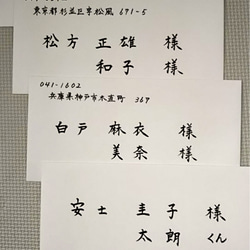 東京都杉並区亨松風 671-5
松方 正雄 様
和子 様
041-1602
兵庫県神戸市木直町 369
白戸 麻衣 様
美奈 様
安士 圭子 様
太朗 くん